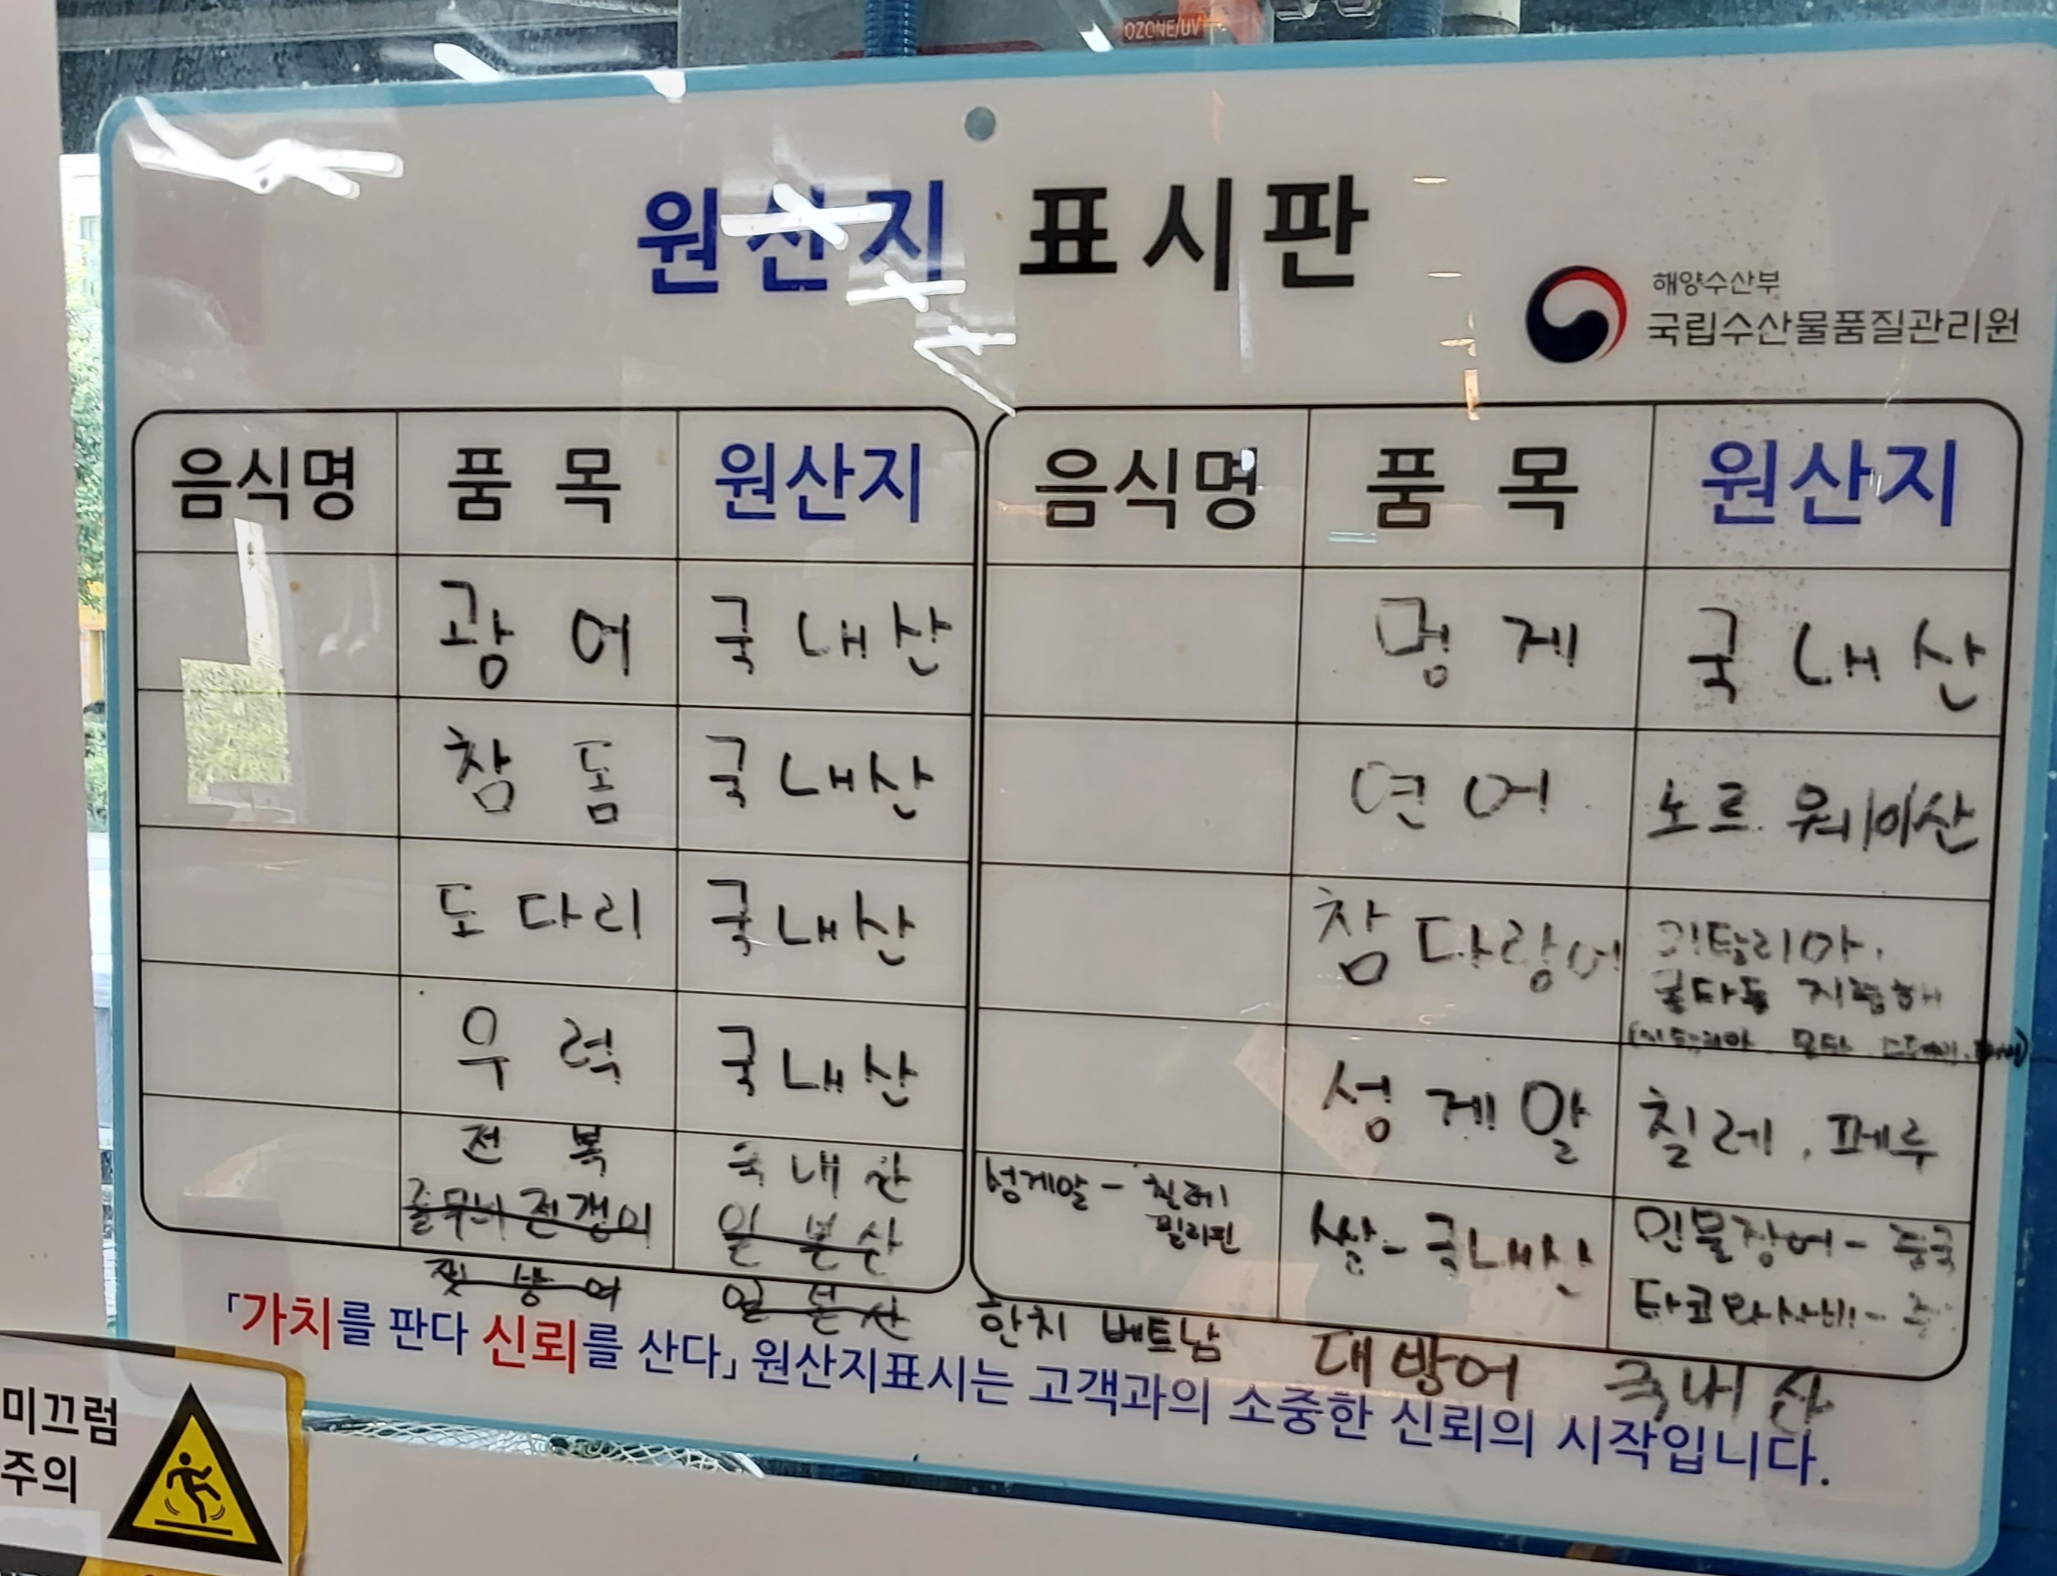 OZONE/UV
원산지 표시판
해양수산부
국립수산물품질관리원
음식명 품 목 원산지
광 어 국내산
참 돔 국내산
도다리 국내산
우 럭 국내산
전 복 국내산
줄무늬전갱이 일본산
잿방어 일본산
음식명 품 목 원산지
멍 게 국내산
연어 노르웨이산
참다랑어
지중해
성게알 칠레, 페루
성게알 - 칠레
필리핀
쌀 - 국내산
민물장어 - 중국
타코와사비 -
한치 베트남
대방어 국내산
「가치를 판다 신뢰를 산다」 원산지표시는 고객과의 소중한 신뢰의 시작입니다.
미끄럼
주의